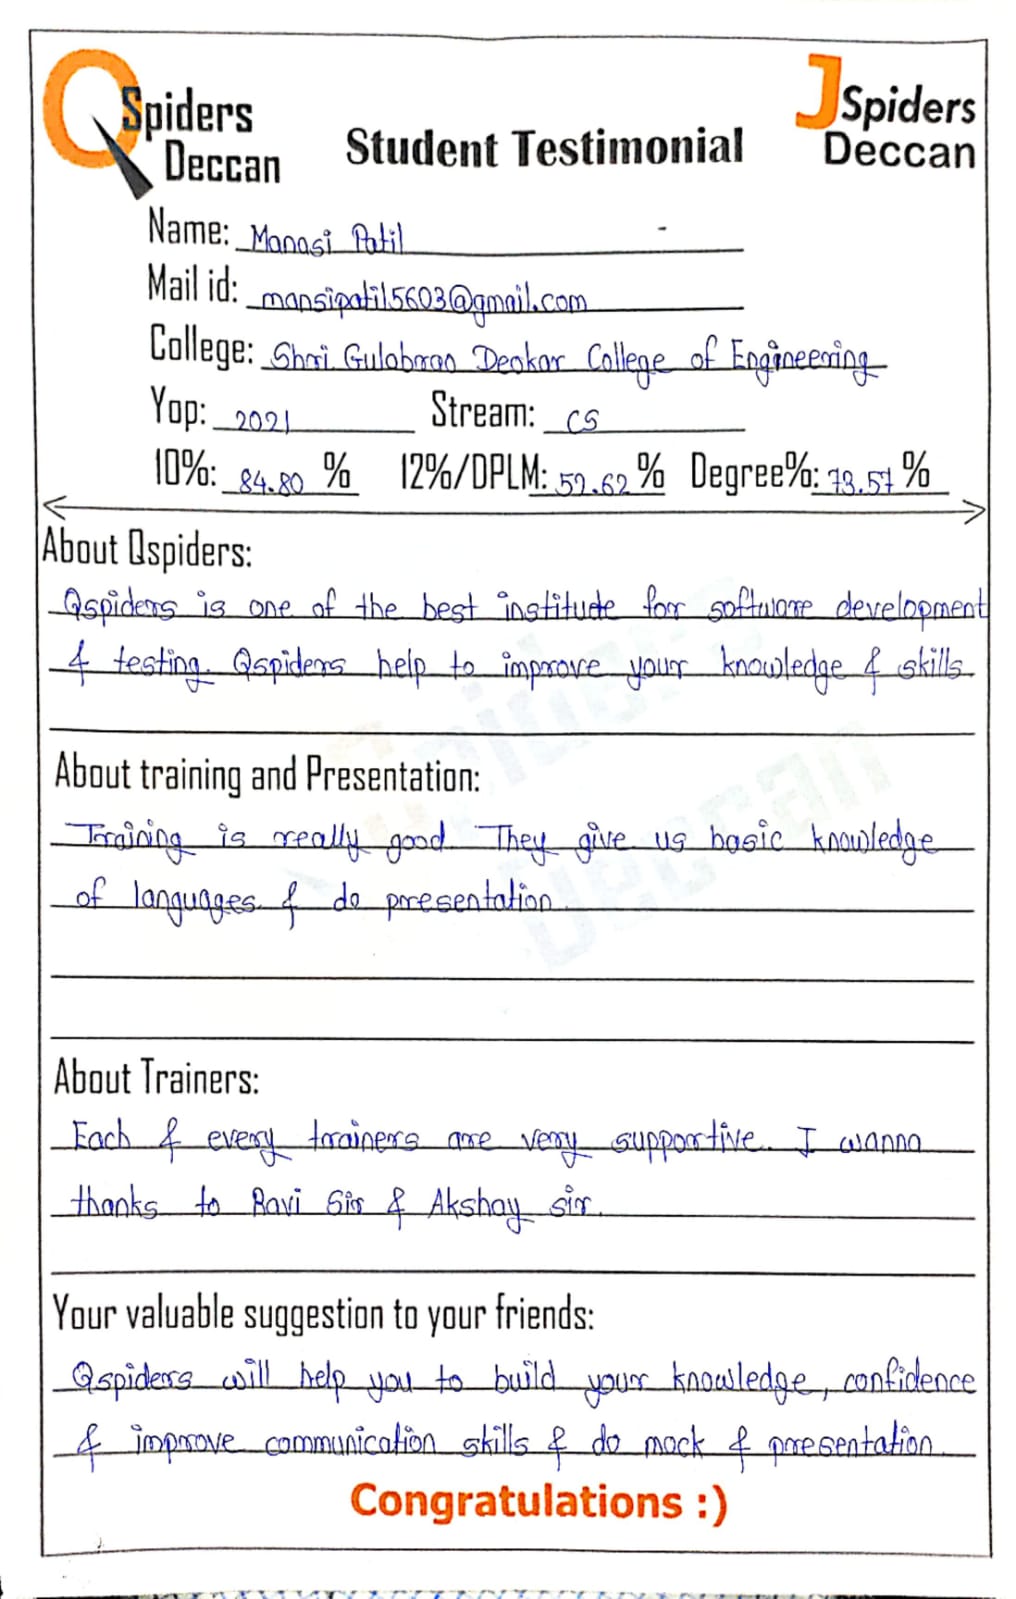 QSpiders
Deccan
Student Testimonial
JSpiders
Deccan
Name: Manasi Patil
Mail id: mansipatil5603@gmail.com
College: Shri. Gulabrao Deokar College of Engineering
Yop: 2021 Stream: CS
10%: 84.80 % 12%/DPLM: 52.62 % Degree%: 73.57 %
About Qspiders:
Qspiders is one of the best institude for software development
& testing. Qspiders help to improve your knowledge & skills.
About training and Presentation:
Training is really good. They give us basic knowledge
of languages & do presentation.
About Trainers:
Each & every trainers are very supportive. I wanna
thanks to Ravi Sir & Akshay sir.
Your valuable suggestion to your friends:
Qspiders will help you to build your knowledge, confidence
& improve communication skills & do mock & presentation.
Congratulations :)